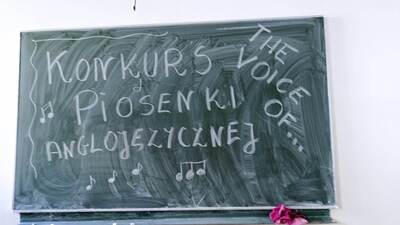 KONKURS
PIOSENKI
ANGLOJĘZYCZNEJ
THE
VOICE
OF...